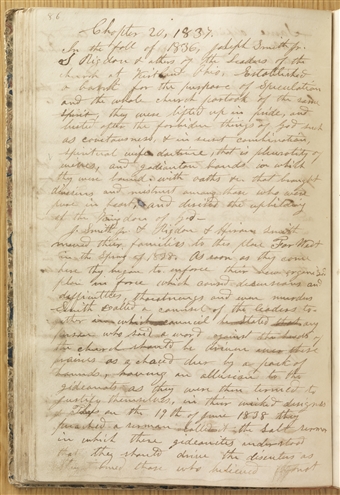 86
Chapter 20, 1837.
In the fall of 1836, Joseph Smith jr.
S Rigdon & others of the leaders of the
church at Kirtland Ohio, Established
a bank for the purpose of Speculation
and the whole church partook of the same
Spirit, they were lifted up in pride, and
lusted after the forbidden things of God such
as covetousness, & in secret combination,
spiritual wife doctrine, that is plurality of
wives, and Gadianton bands in which
they were bound with oaths &c that brought
divisions and mistrust among those who were
pure in heart, and desired the upbuilding
of the Kingdom of God.
J. Smith jr & Rigdon & Hiram Smith
moved their families to this place Far West
in the Spring of 1838. As soon as they came
here they began to enforce their new organised
plan in force which caused dissensions an
difficulties, threatnings and even murders
Smith called a counsel of the leaders to-
any
person who said a word against the heads of
the church should be driven over these
prairies as a chased deer by a pack of
hounds, having an allusion to the
gideonites as they were then termed to
justify themselves, in their wicked designs
on the 19th of June 1838 they
preached a sermon called the salt sermon
in which these gideonites understood
that they should drive the dissenters as
those who believed not